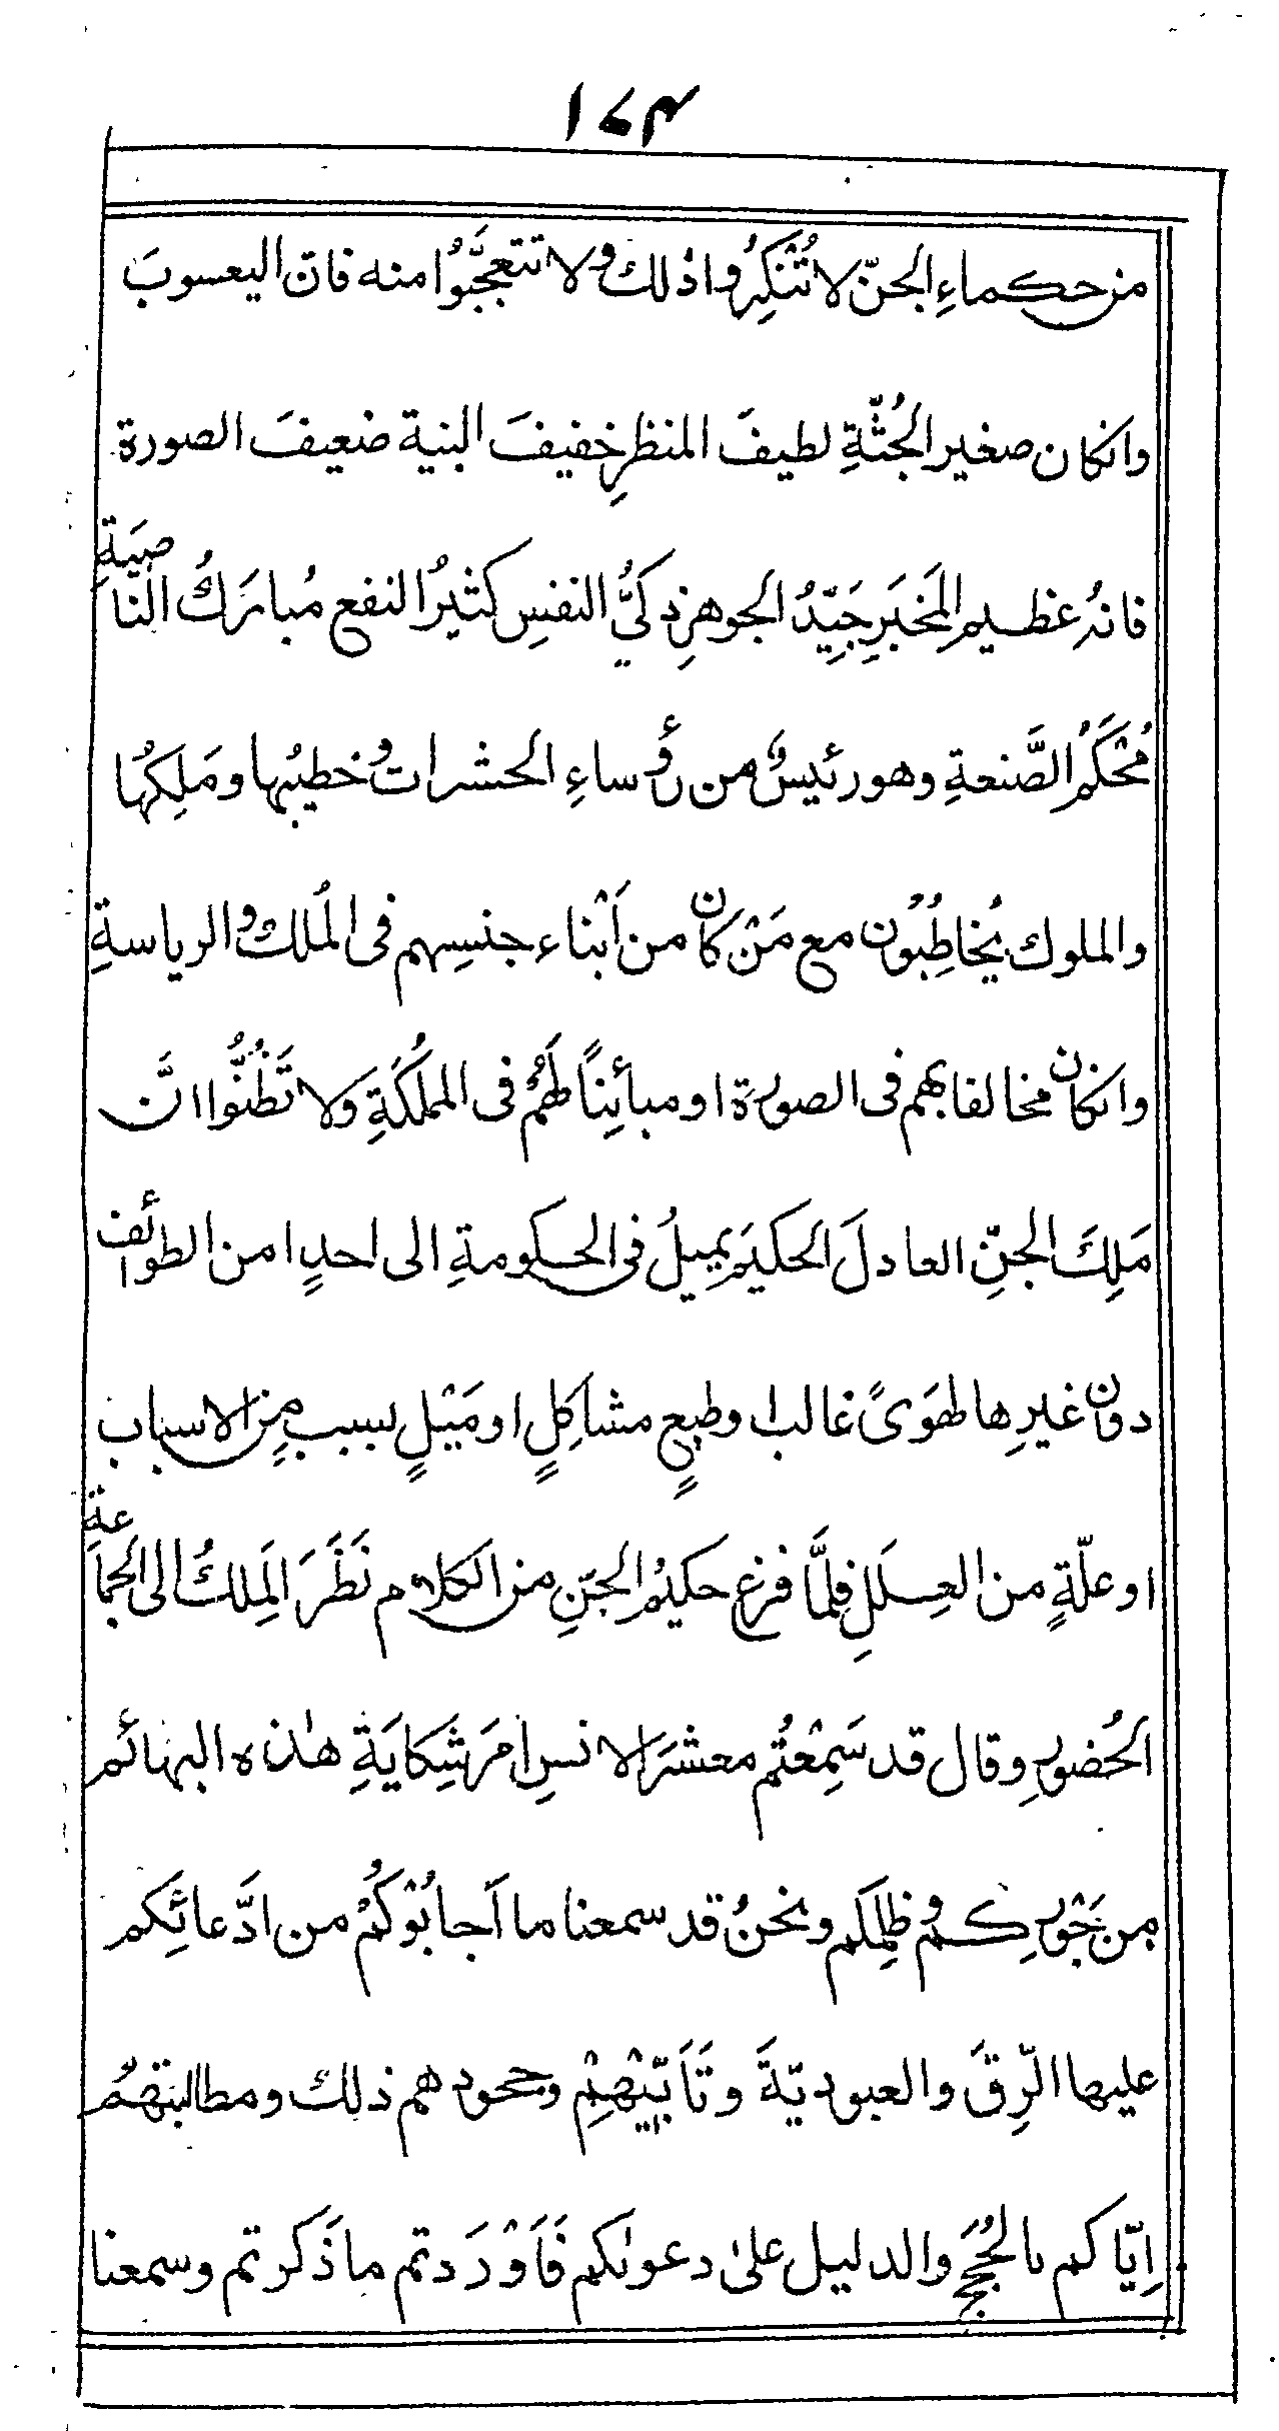 ۱۷۴
من حكماءِ الجنّ لا تُنْكِرُوا ذلك ولا تتعجَّبُوا منه فان اليعسوبَ
وانكان صغير الجُثّةِ لطيفَ المنظرِ خفيفَ البنية ضعيفَ الصورة
فانهُ عظيم المَخبَرِ جَيِّدُ الجوهرِ ذكيُّ النفسِ كثيرُ النفع مُبارَكُ الناصيَةِ
مُحْكَمُ الصَّنعةِ وهو رئيسٌ من رؤساءِ الحشرات وخطيبُها ومَلِكُها
والملوك يُخاطِبُون مع مَنْ كان من اَبْناء جنسِهم فى المُلك والرياسةِ
وانكان مخالفا بهم فى الصورة او مبائِنًا لَهُمْ فى المملكَةِ وَلا تَظُنُّوا انَّ
مَلِكَ الجنِّ العادلَ الحكيمَ يميلُ فى الحكومةِ الى احدٍ من الطوائف
دون غيرِها لهَوىً غالب او طبعٍ مشاكِلٍ او مَيْلٍ لسبب مِن الاسباب
او علّةٍ من العِلَلِ فلمَّا فرغ حكيمُ الجنِّ من الكلام نَظَرَ المَلِكُ الى الجَماعةِ
الحُضورِ وقال قد سَمِعْتُم معشرَ الانسِ امرَ شِكايَةِ هٰذه البهائم
مِن جَوْرِكم وظلمِكم ونحنُ قد سمعنا ما اَجابُوْكُمْ من ادَّعائِكم
عليها الرِّقَ والعبوديّةَ وتَاَبِّيْهِمْ وجحودهم ذلك ومطالبتهمْ
اِيّاكم بالحُجَجِ والدليل على دعوٰىكم فَاَوْرَدتم ما ذَكرتم وسمعنا